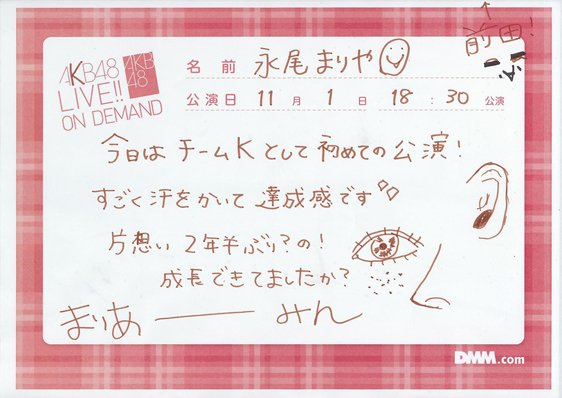 前田!
AKB48
LIVE!!
ON DEMAND
AKB
48
名前 永尾まりや
公演日 11月1日 18:30公演
今日は チームK として 初めての 公演!
すごく汗をかいて 達成感です
片想い 2年半ぶり?の!
成長できてましたか?
まりあ ─── みん
DMM.com